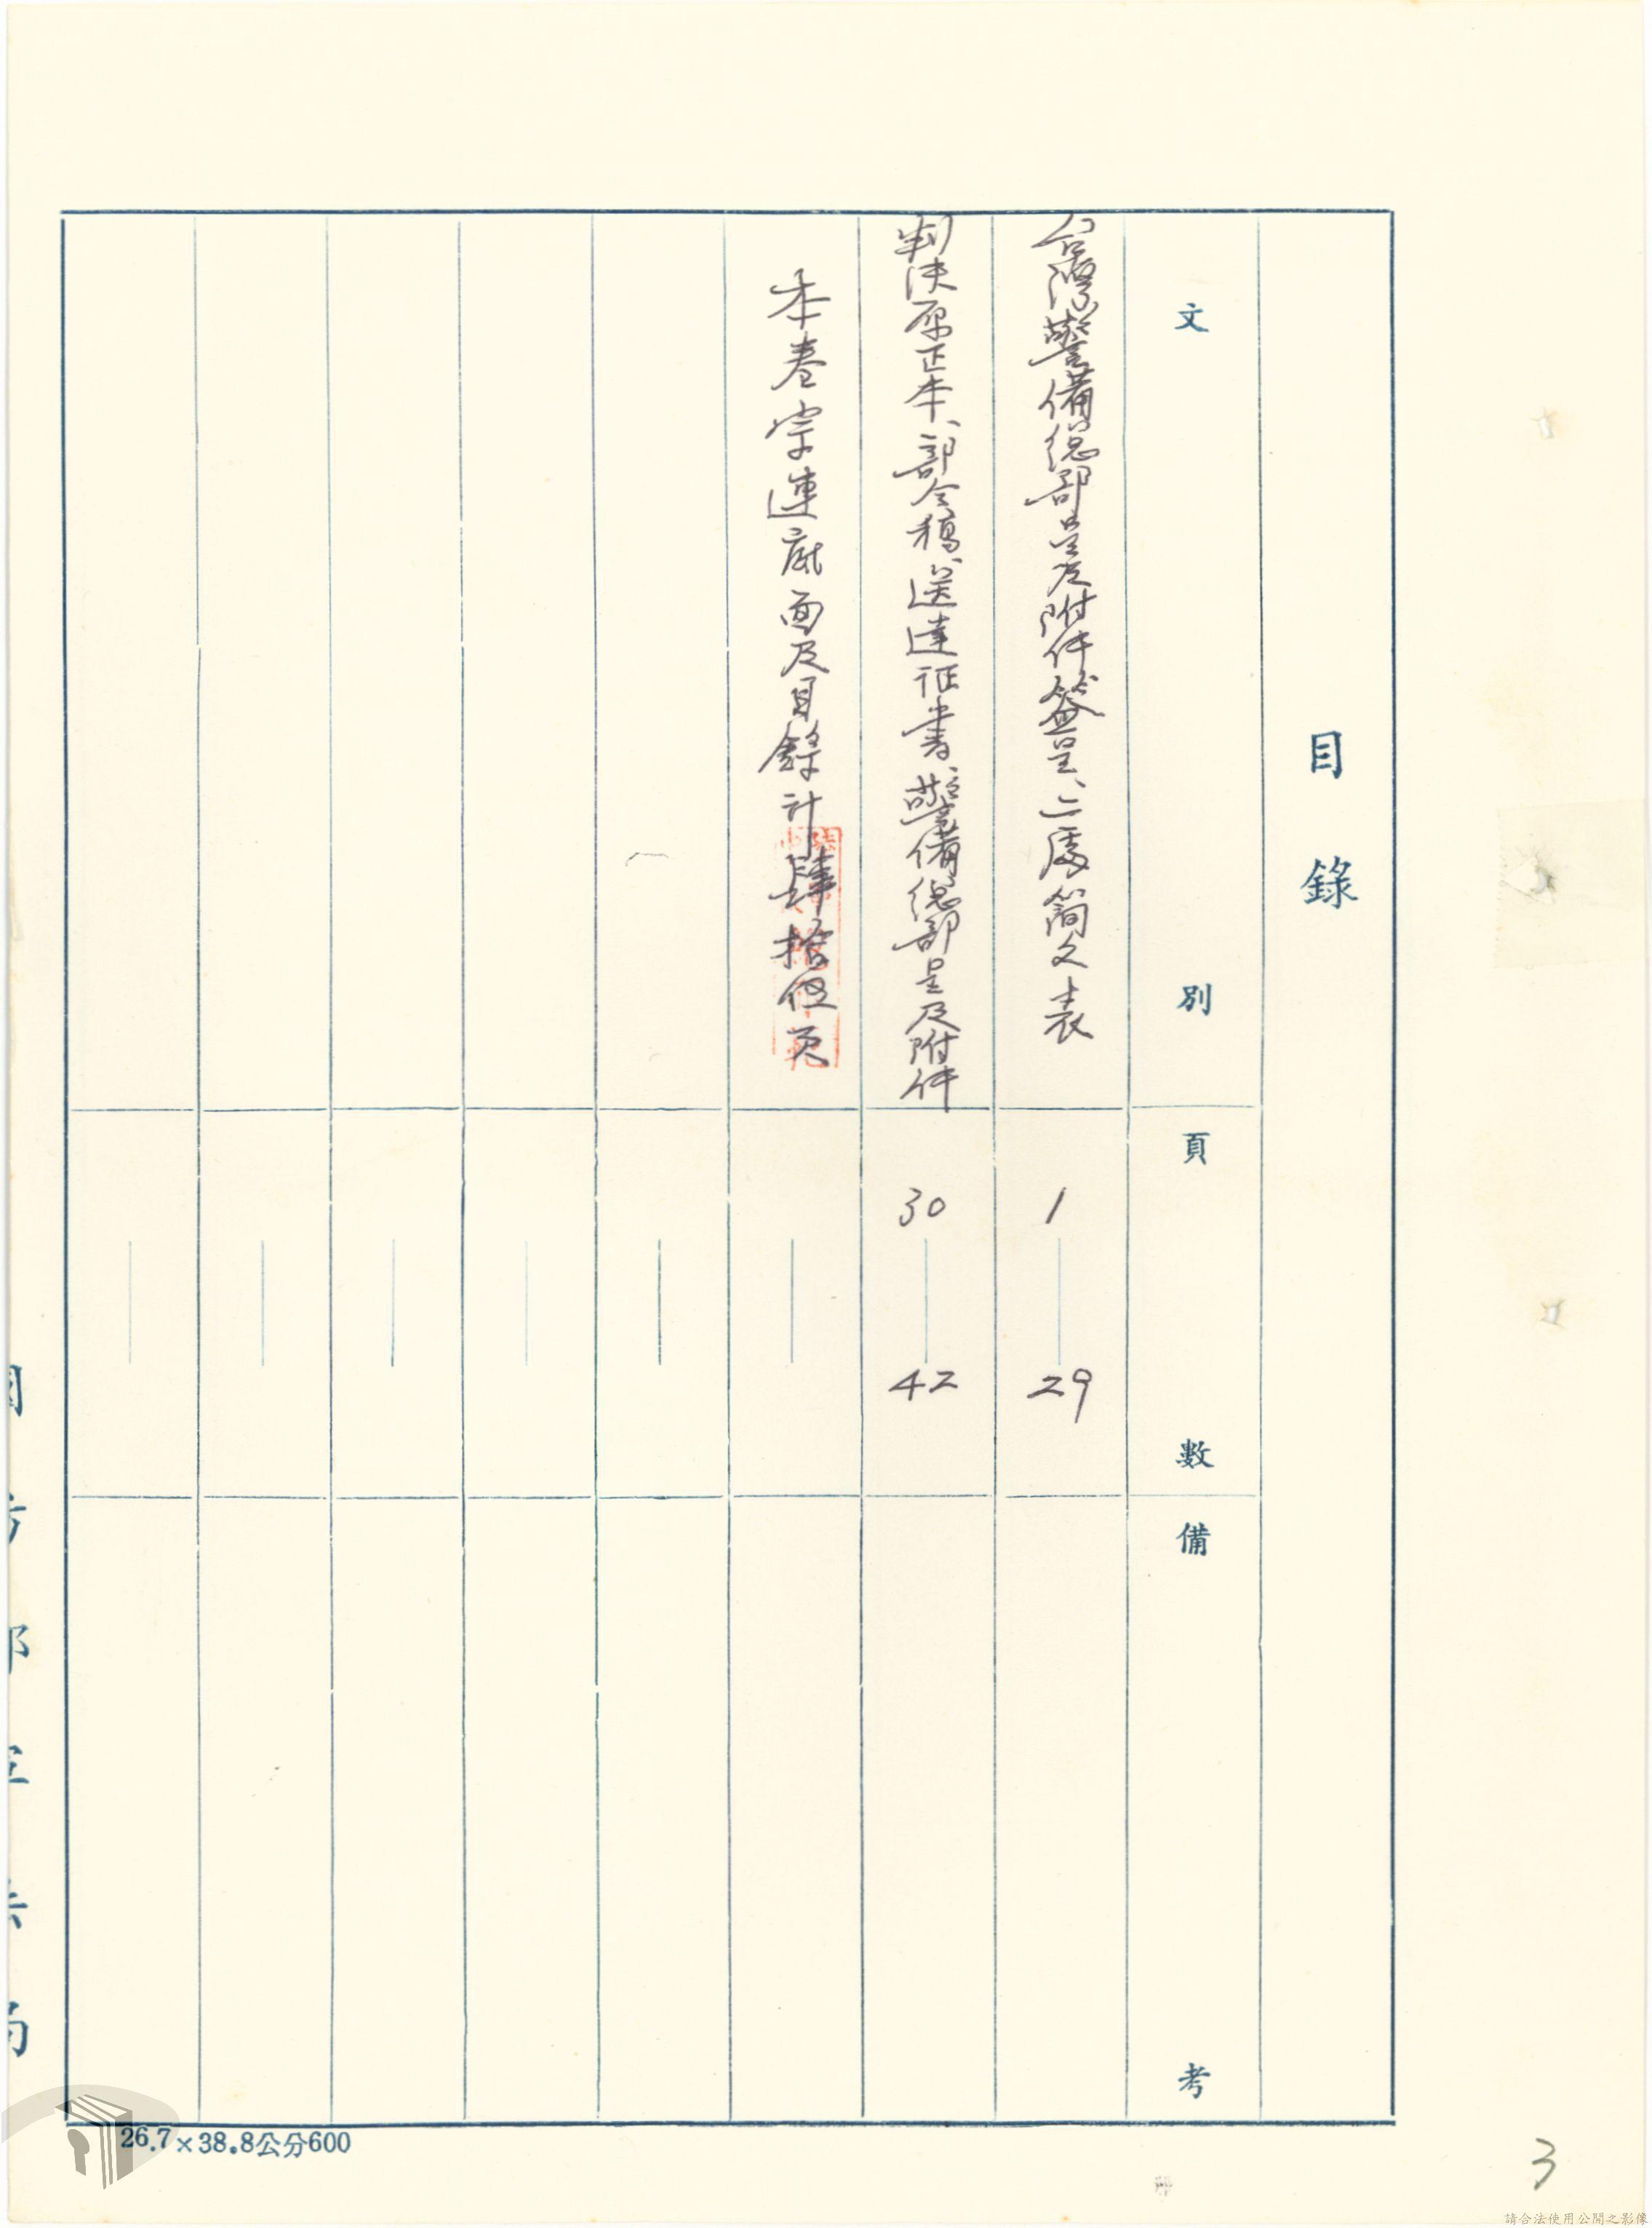 目錄
文別
頁數
備考
台灣警備總部呈及附件簽呈、二處簡久表
1
29
判決原正本、部令稿、送達征書、警備總部呈及附件
30
42
本卷宗連底面及目錄計肆拾伍頁
26.7×38.8公分600
3
請合法使用公開之影像